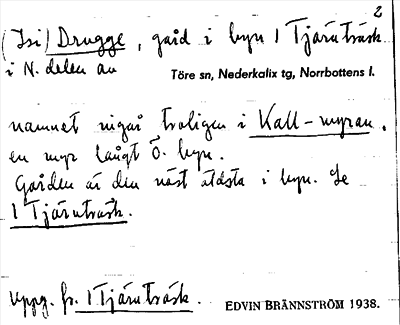 2
(Isi) Drugge, gård i byn 1 Tjärnträsk
i N. delen av Töre sn, Nederkalix tg, Norrbottens l.
namnet ingår troligen i Kall-myran,
en myr långt Ö. byn.
Gården är den näst äldsta i byn. Se
1 Tjärnträsk.
Uppg. fr. 1 Tjärnträsk. EDVIN BRÄNNSTRÖM 1938.